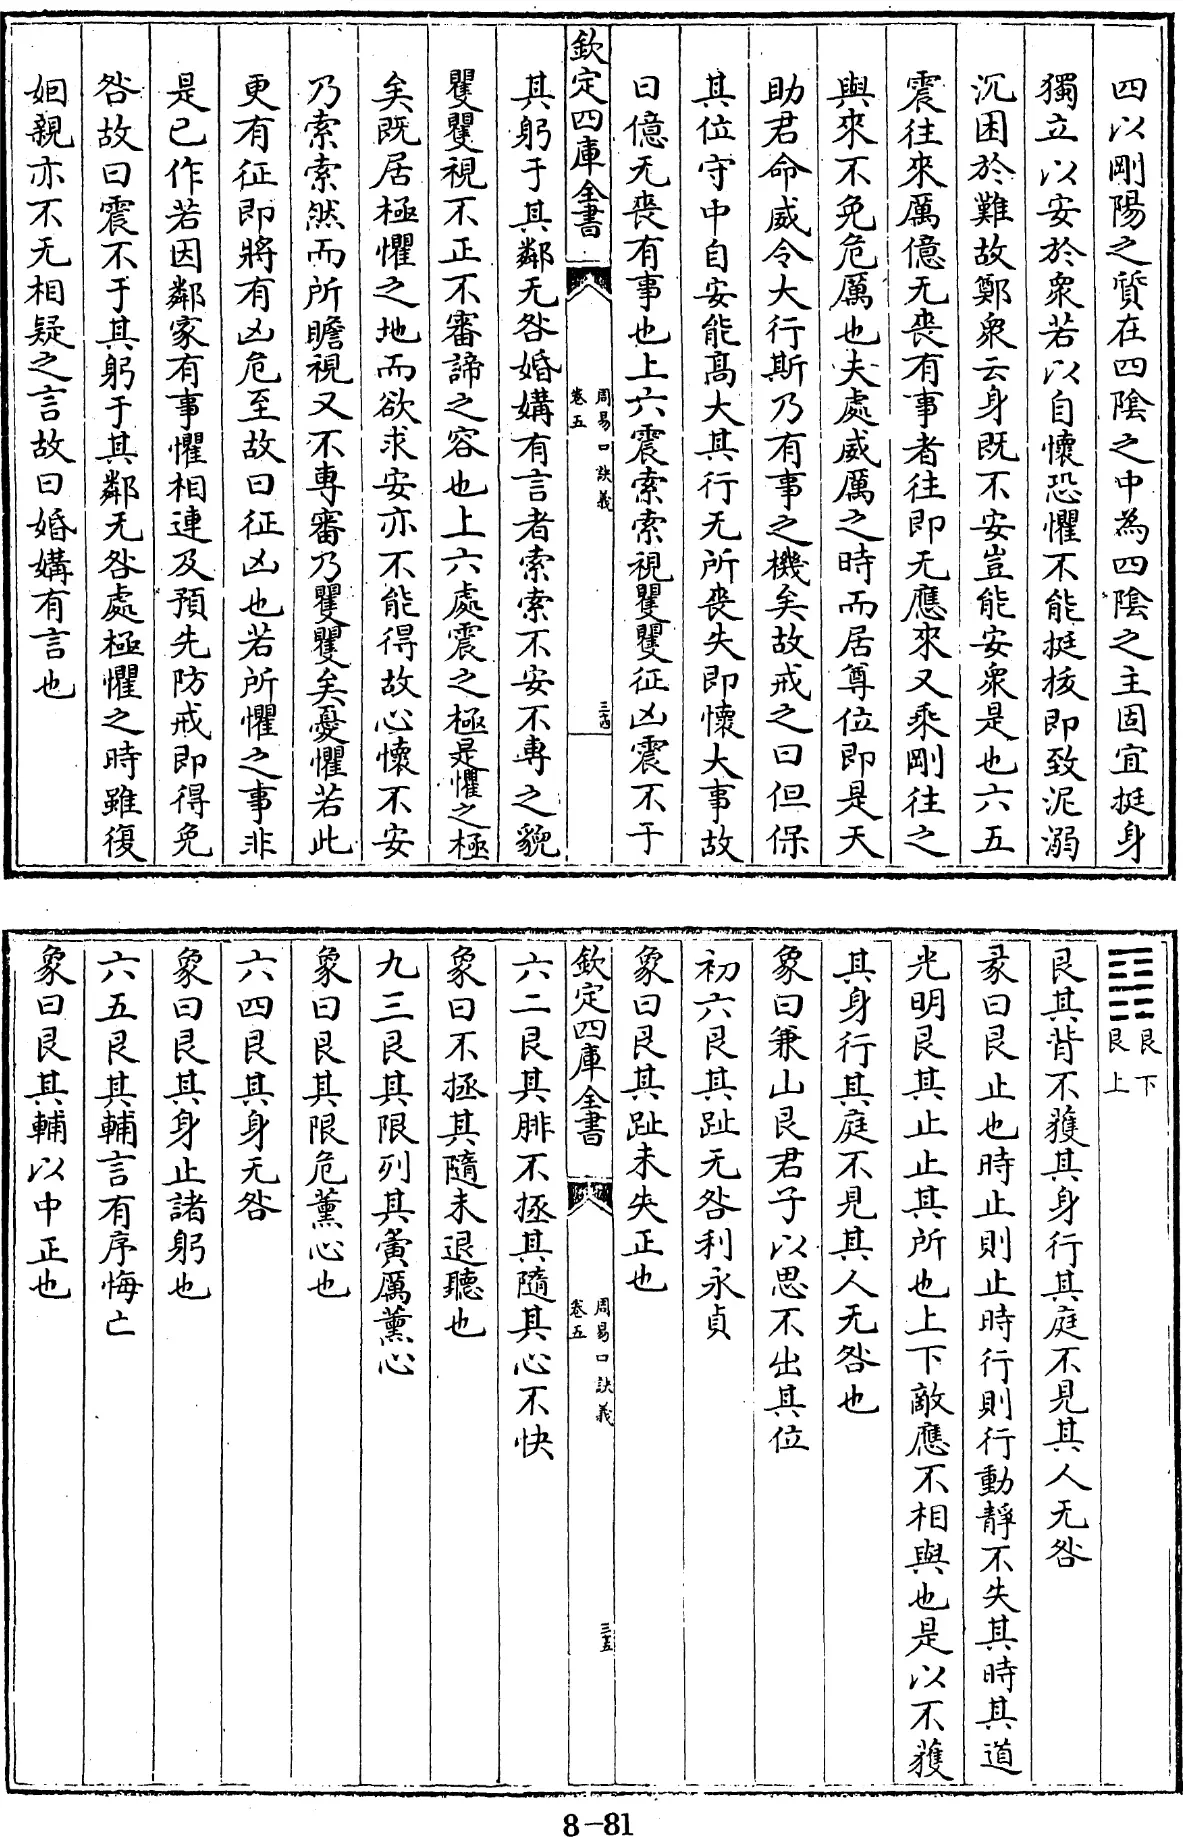 四以剛陽之質在四陰之中為四陰之主固宜挺身
獨立以安於衆若以自懷恐懼不能挺拔即致泥溺
沉困於難故鄭衆云身既不安豈能安衆是也六五
震往來厲億无喪有事者往即无應來又乘剛往之
與來不免危厲也夫處威厲之時而居尊位即是天
助君命威令大行斯乃有事之機矣故戒之曰但保
其位守中自安能髙大其行无所喪失即懷大事故
曰億无喪有事也上六震索索視矍矍征凶震不于
欽定四庫全書
周易口訣義
卷五
三四
其躬于其鄰无咎婚媾有言者索索不安不專之貌
矍矍視不正不審諦之容也上六處震之極是懼之極
矣既居極懼之地而欲求安亦不能得故心懷不安
乃索索然而所瞻視又不專審乃矍矍矣憂懼若此
更有征即將有凶危至故曰征凶也若所懼之事非
是已作若因鄰家有事懼相連及預先防戒即得免
咎故曰震不于其躬于其鄰无咎處極懼之時雖復
姻親亦不无相疑之言故曰婚媾有言也
艮下
艮上
艮其背不獲其身行其庭不見其人无咎
彖曰艮止也時止則止時行則行動靜不失其時其道
光明艮其止止其所也上下敵應不相與也是以不獲
其身行其庭不見其人无咎也
象曰兼山艮君子以思不出其位
初六艮其趾无咎利永貞
象曰艮其趾未失正也
欽定四庫全書
周易口訣義
卷五
三五
六二艮其腓不拯其隨其心不快
象曰不拯其隨未退聽也
九三艮其限列其夤厲薰心
象曰艮其限危薰心也
六四艮其身无咎
象曰艮其身止諸躬也
六五艮其輔言有序悔亡
象曰艮其輔以中正也
8-81